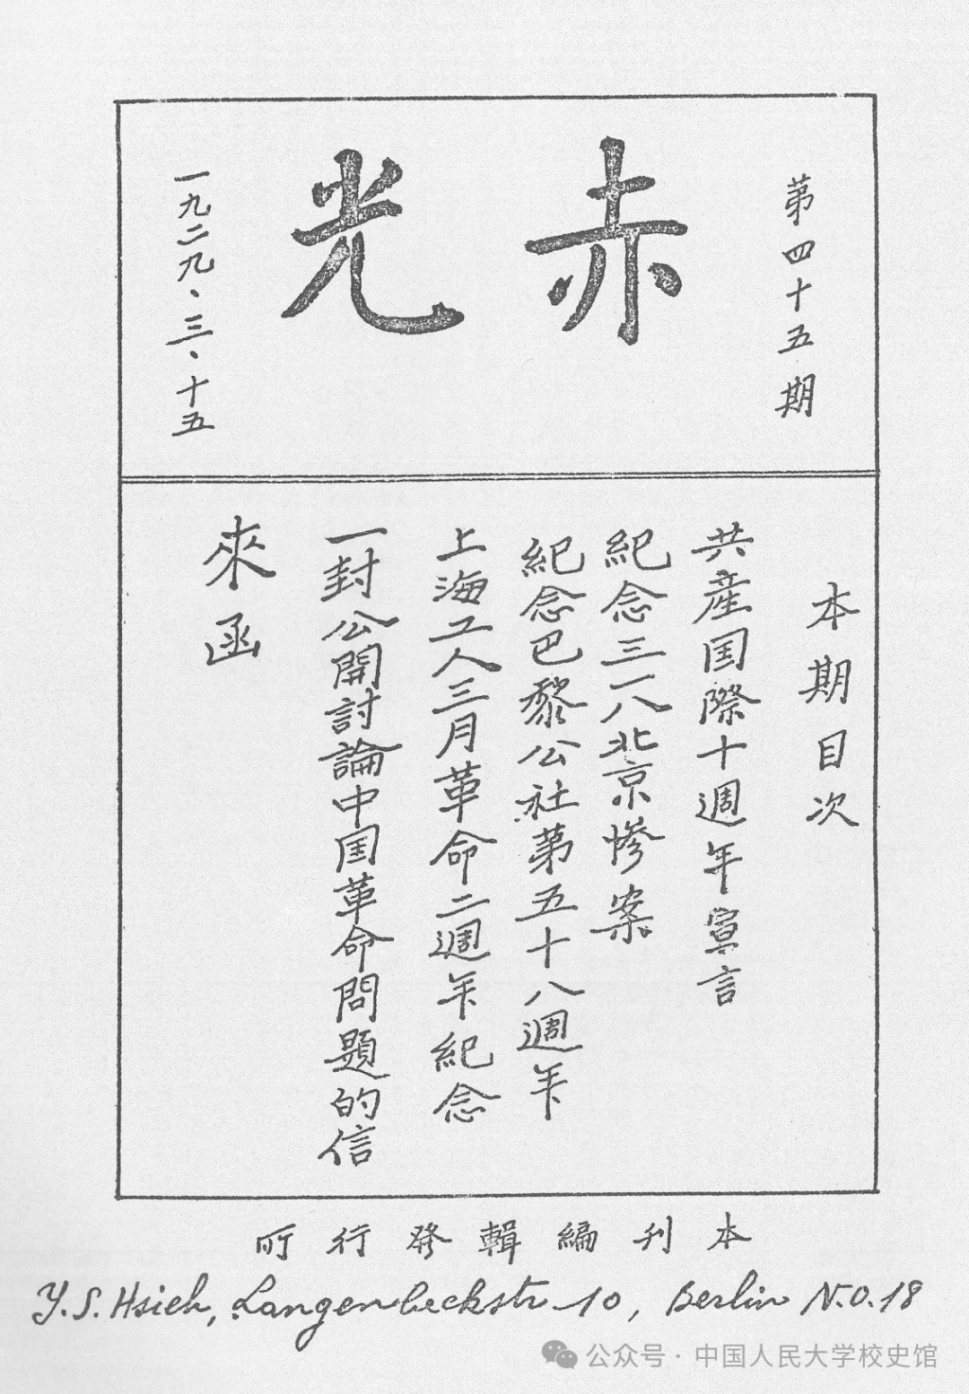 第四十五期
赤光
一九二九、三、十五
本期目次
共産国際十週年宣言
紀念三一八北京慘案
紀念巴黎公社第五十八週年
上海工人三月革命二週年紀念
一封公開討論中国革命問題的信
來函
本刊編輯發行所
Y. S. Hsieh, Langenbeckstr. 10, Berlin N.O.18
公众号·中国人民大学校史馆